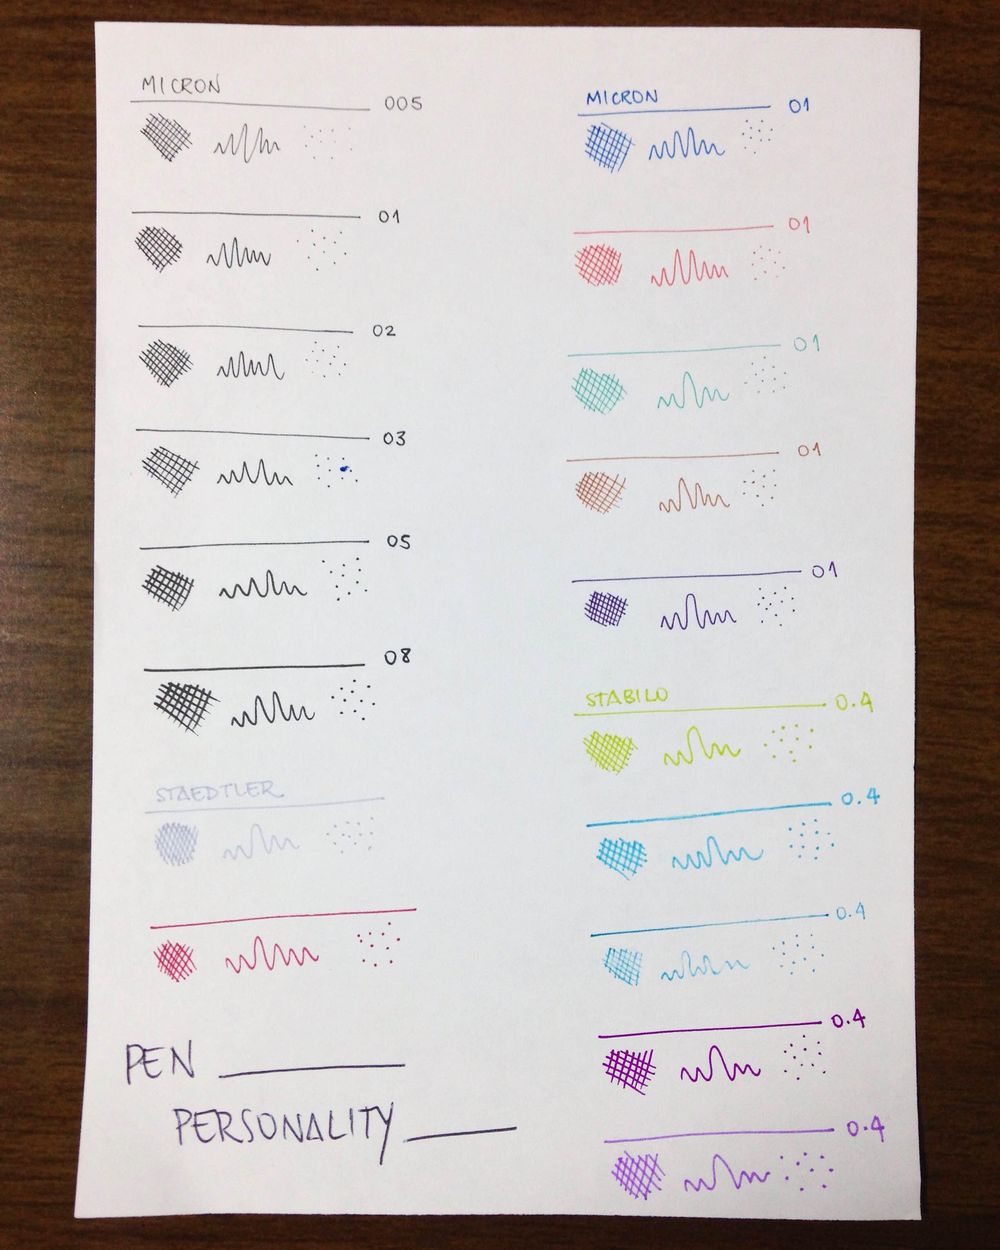 MICRON
005
01
02
03
05
08
STAEDTLER
PEN
PERSONALITY
MICRON
01
01
01
01
01
STABILO
0.4
0.4
0.4
0.4
0.4